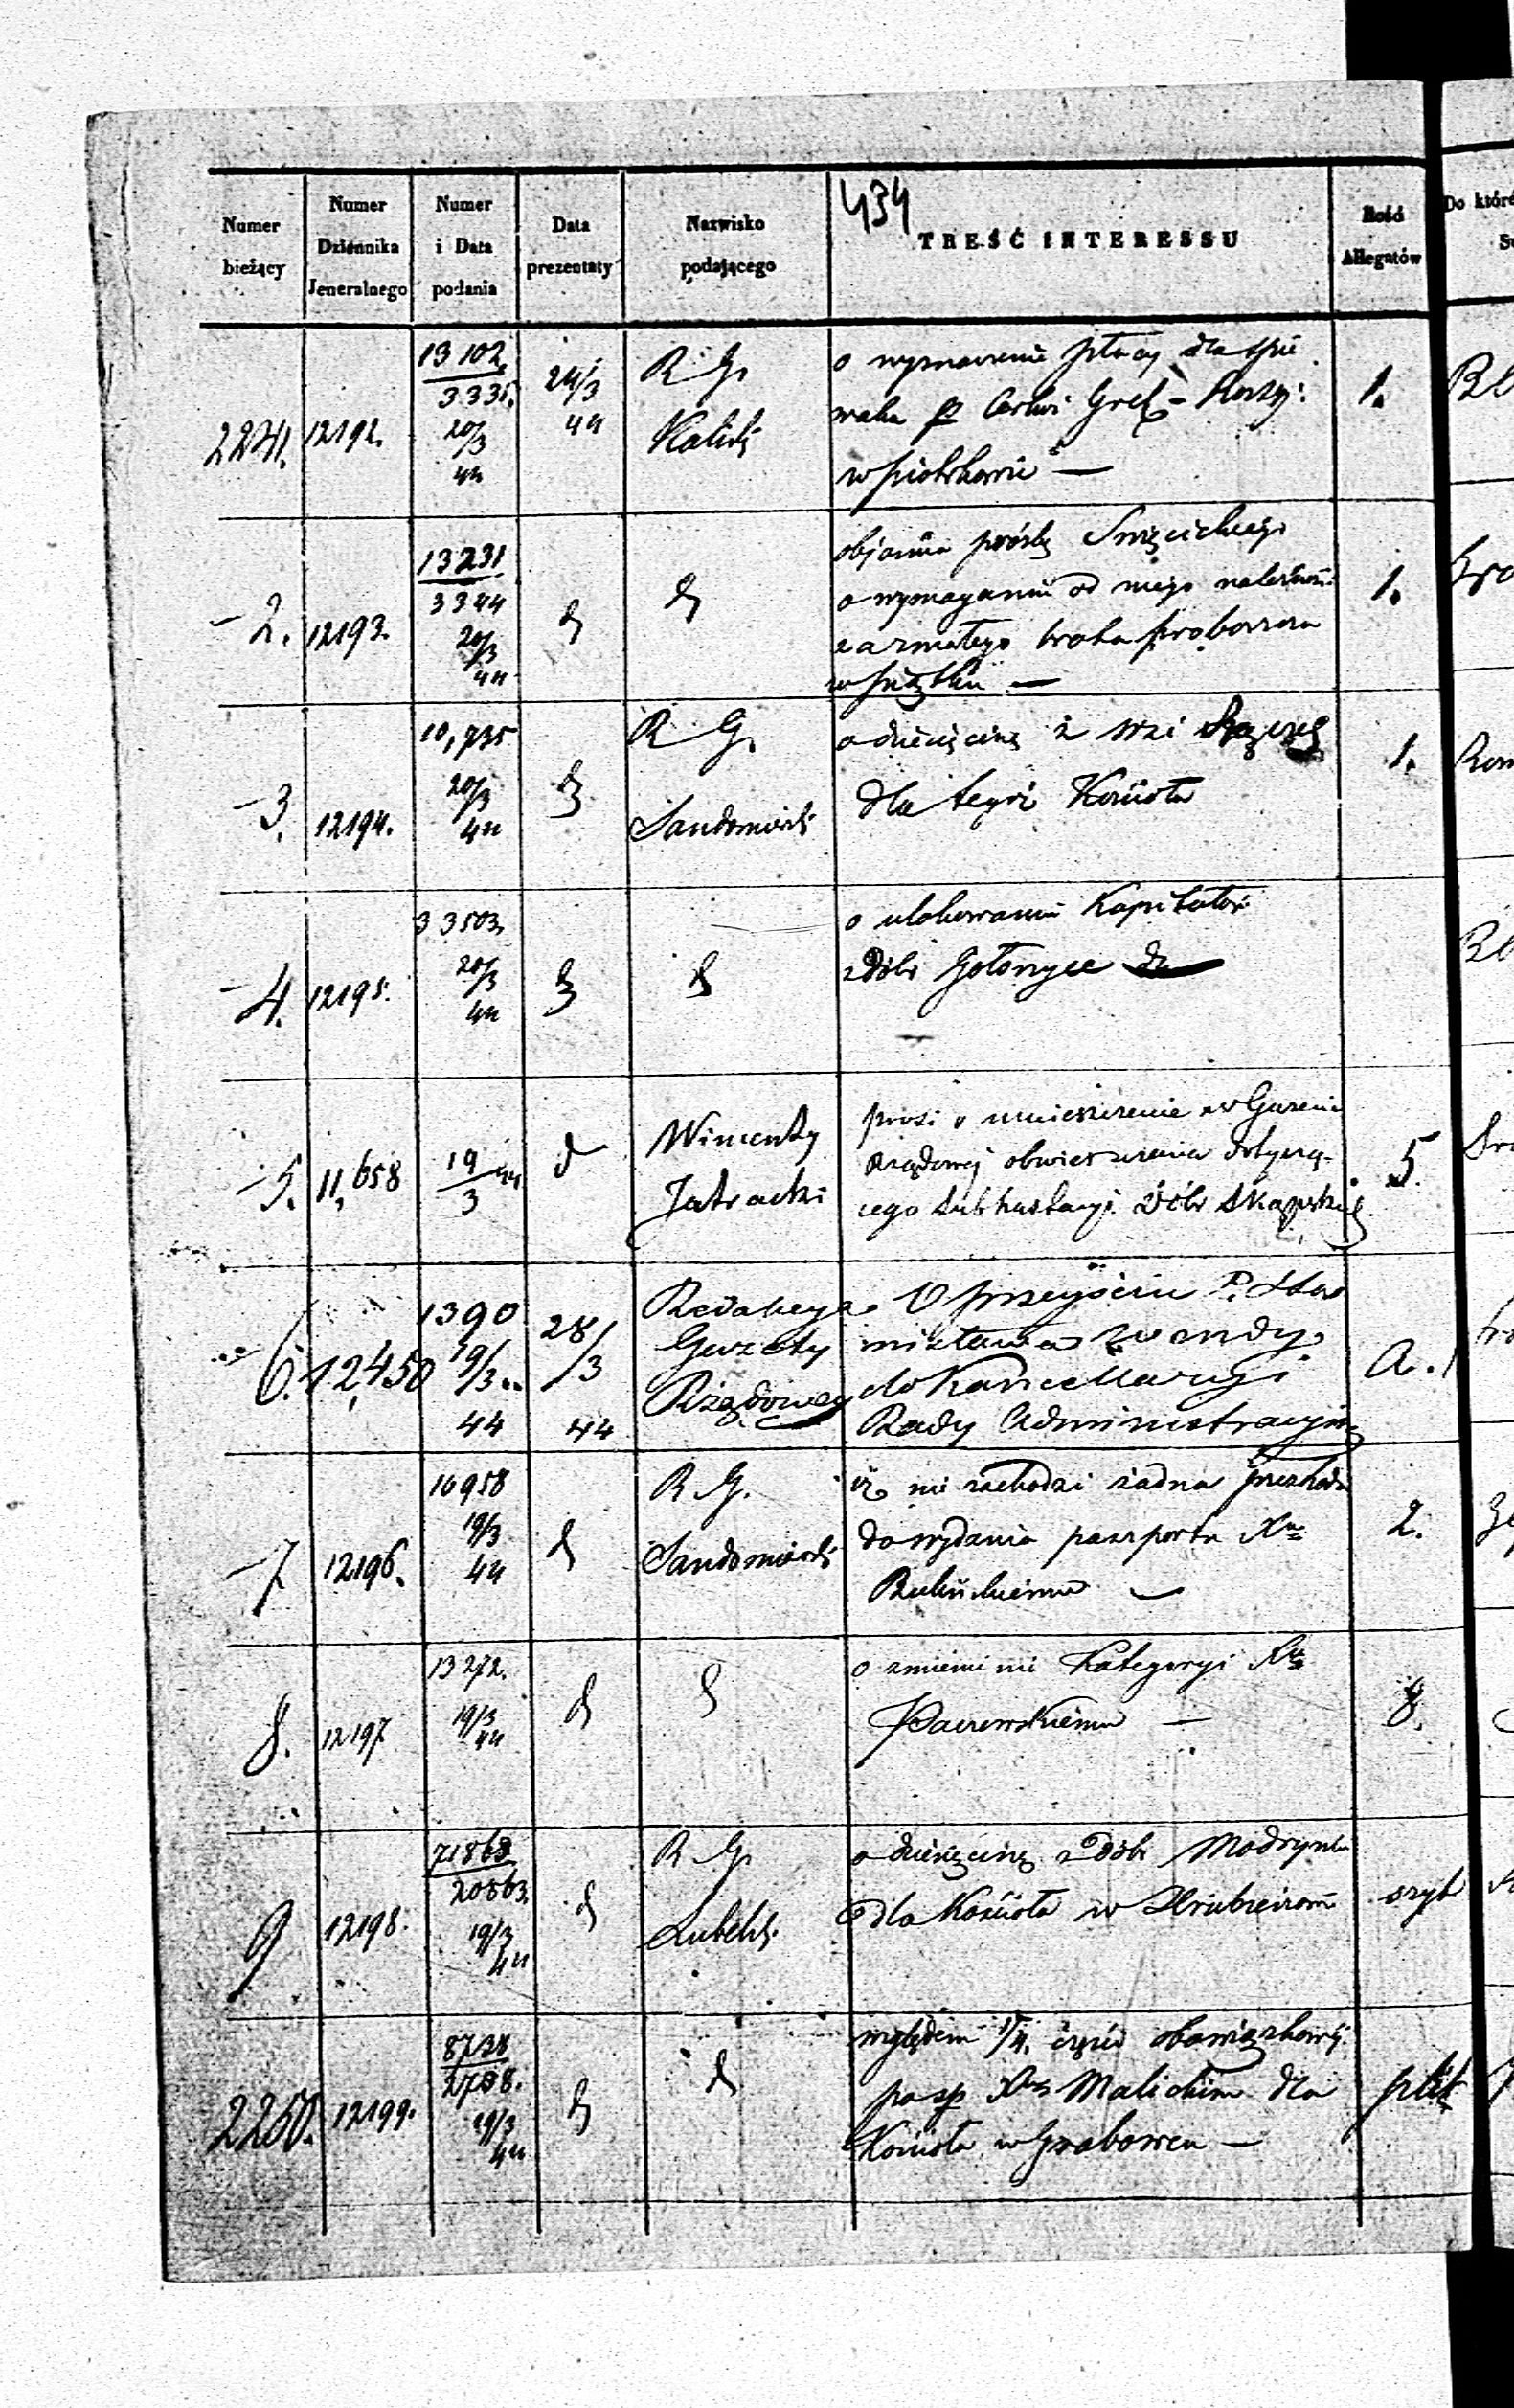 434
Numer bieżący | Numer Dziennika Jeneralnego | Numer i Data podania | Data prezentaty | Nazwisko podającego | TREŚĆ INTERESSU | Ilość Allegatów | Do któré
2241. | 12192. | 13102 / 3335. 20/3 44 | 24/3 44 | R. G. Kalisk | o wyznaczenie płacy dla śpie
waka p Cerkwi Grek – Rossyj:
w Piotrkowie — | 1.
– 2. | 12193. | 13231 / 3344 20/3 44 | d | d | objaśnia prośbę Święcickiego
o wymaganiu od niego należnoś:
za zmałego Proboszcza
w Piątku — | 1.
– 3. | 12194. | 10,735 20/3 44 | d | R. G. Sandomirsk | o dziesięcinę z wsi
dla tegoż Kościoła | 1.
– 4. | 12195. | 33503 20/3 44 | d | d | o ulokowaniu Kapitałów
z dóbr Gołoszyce
– 5. | 11,658 | 19/3 44 | d | Wincenty Jatracki | prosi o umieszczenie w Gazecie
Rządowej obwieszczenia dotyczą-
cego subhastacyi Dóbr Skąpskie | 5.
6. | 12,450 | 1390 19/3 44 | 28/3 44 | Redakcya Gazety Rządowey | O przejściu P. Sta
nisława
do Kancellaryi
Rady Administracyjn | a. 1
– 7 | 12196. | 16958 19/3 44 | d | R. G. Sandomirsk | iż nie zachodzi żadna przeszkoda
do wydania paszportu Xu
Rulińskiemu — | 2.
8. | 12197 | 13272. 19/3 44 | d | d | o zmienienie Kategoryi Xu
Paczewskiemu — | 8.
9 | 12198. | 71868 / 20863. 19/3 44 | d | R. G. Lubelsk. | o dziesięcinę z Dóbr Modryń
dla Kościoła w Hrubieszow | szyt
2250. | 12199. | 8728 / 2788. 19/3 44 | d | d | względem 1/4. części obowiązkowéj
po śp Xu Malickim dla
Kościoła w Grabowcu — | plik